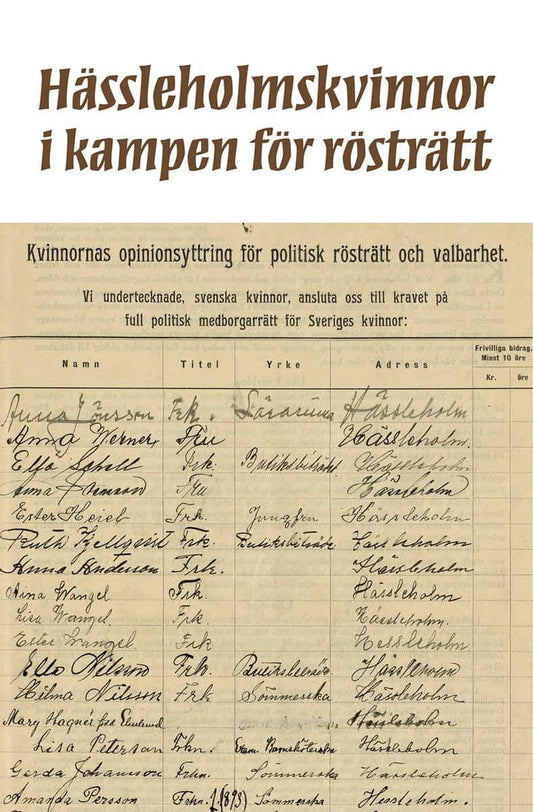 Hässleholmskvinnor
i kampen för rösträtt
Kvinnornas opinionsyttring för politisk rösträtt och valbarhet.
Vi undertecknade, svenska kvinnor, ansluta oss till kravet på
full politisk medborgarrätt för Sveriges kvinnor:
Namn Titel Yrke Adress Frivilliga bidrag. Minst 10 öre
Kr. öre
Anna Jönsson Frk. Lärarinna Hässleholm
Anna Werner Fru Hässleholm.
Elsa Schell Frk. Butiksbiträde Hässleholm
Anna Fru Hässleholm
Ester Heich Frk. Jungfru Hässleholm
Ruth Kjellqvist Frk. Butiksbiträde Hässleholm
Anna Anderson Frk. Hässleholm
Aina Wangel Frk. Hässleholm
Lisa Wangel Frk. Hässleholm.
Ester Wangel Frk Hessleholm
Ella Nilsson Frk. Butiksbiträde Hässleholm
Hilma Nilsson Frk Sömmerska Hässleholm
Mary Hagnér Hässleholm
Lisa Peterson Frkn. Exam. Hässleholm
Gerda Johansson Frkn. Sömmerska Hässleholm
Amanda Persson Frkn. (1893) Sömmerska Hessleholm.